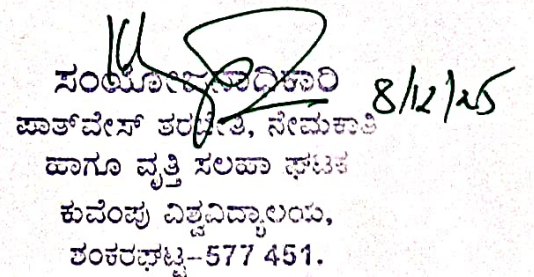 ಸಂಯೋಜನಾಧಿಕಾರಿ 8/12/25
ಪಾತ್‌ವೇಸ್ ತರಬೇತಿ, ನೇಮಕಾತಿ
ಹಾಗೂ ವೃತ್ತಿ ಸಲಹಾ ಘಟಕ
ಕುವೆಂಪು ವಿಶ್ವವಿದ್ಯಾಲಯ,
ಶಂಕರಘಟ್ಟ-577 451.